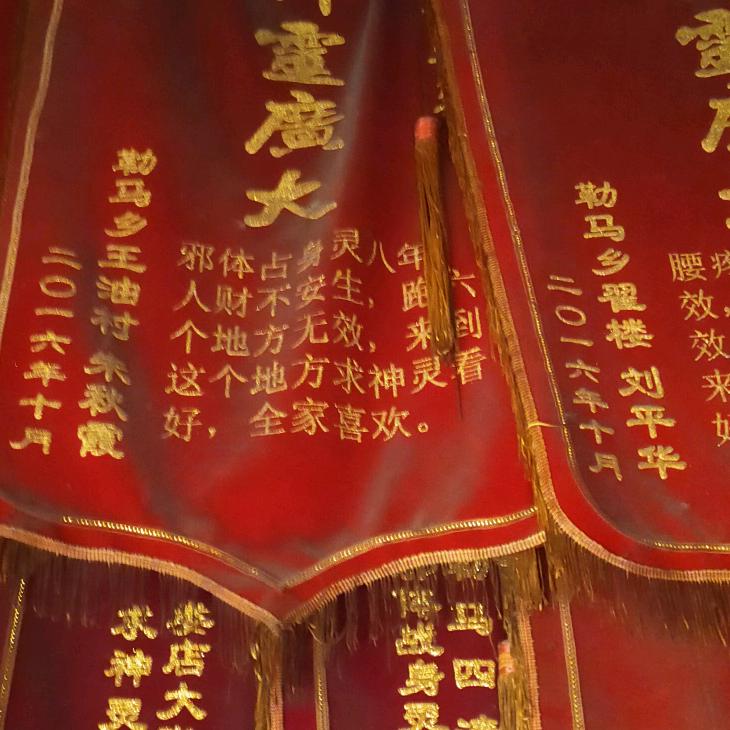 靈廣大
邪体占身灵八年六
人财不安生，跑到
个地方无效，来看
这个地方求神灵
好，全家喜欢。
勒马乡王油村 朱秋霞
二〇一六年十月
靈
腰疼
效，
效
来
好
勒马乡翟楼 刘平华
二〇一六年十月
店大
求神灵
马四
身灵